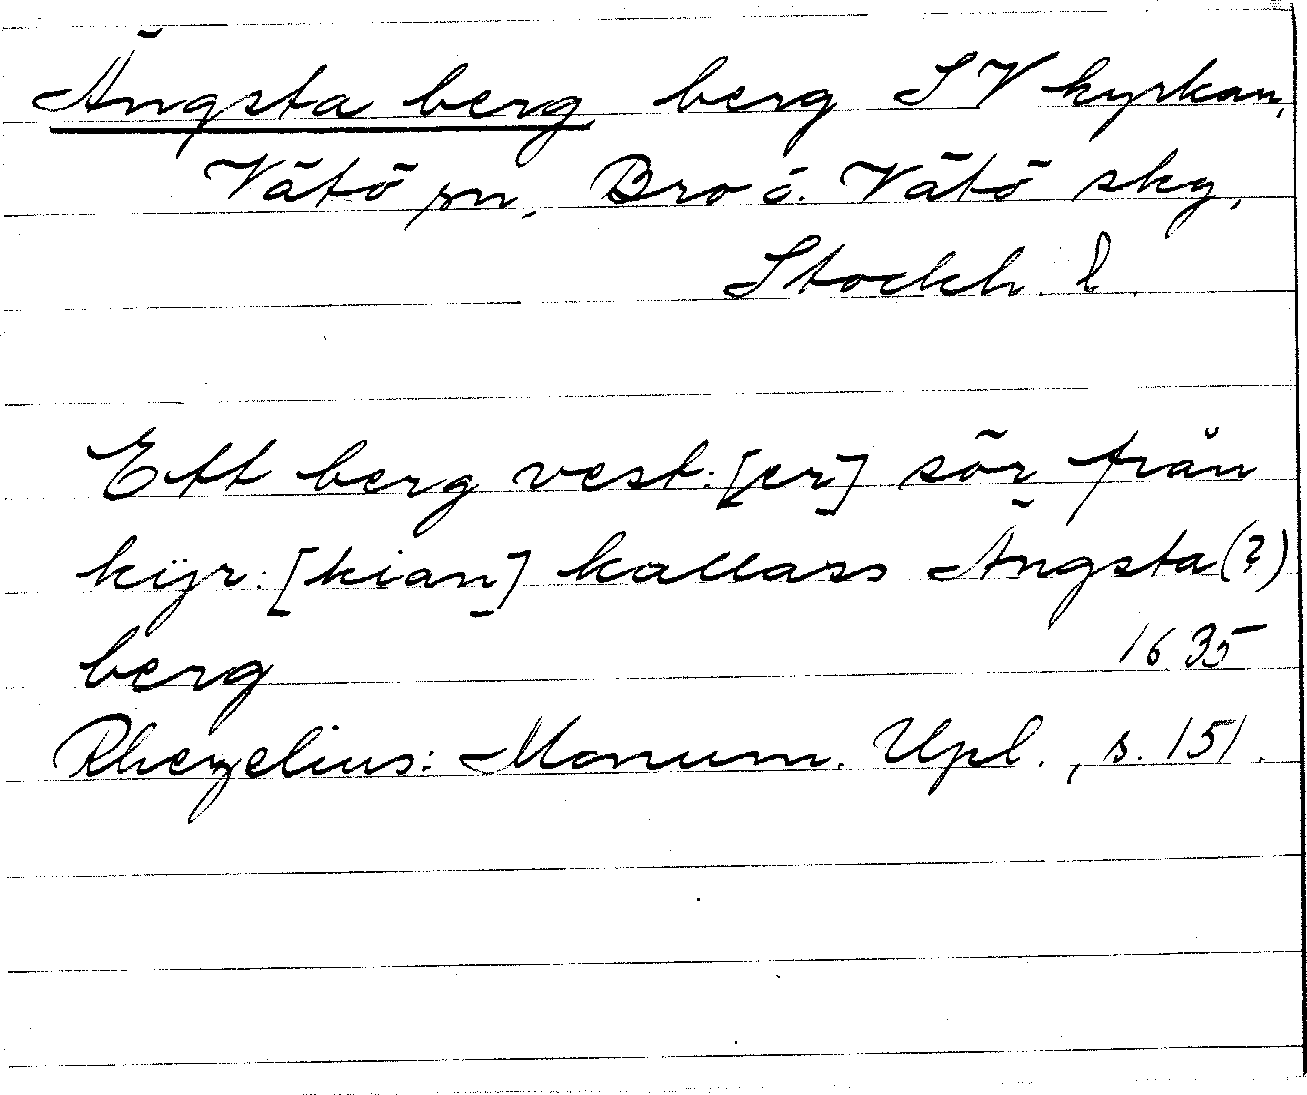 Ängsta berg berg SV kyrkan,
Vätö sn, Bro o. Vätö skg,
Stockh. l.
Ett berg vest:[er] sör från
kijr:[kian] kallass Ängsta(?)
berg 1635
Rhezelius: Monum. Upl., s. 151.